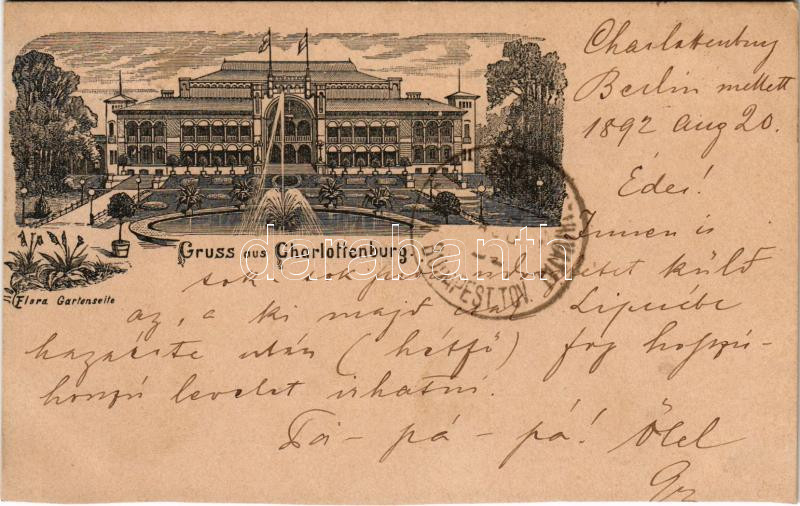 Charlottenburg
Berlin mellett
1892 aug 20.
Édes!
Innen is
Gruss aus Charlottenburg.
sok sok üdvözletet küld
Flora Gartenseite
az, a ki majd csak Lipcsébe
hazaérte után (hétfő) fog hosszú-
hosszú levelet irhatni.
Pá - pá - pá! Ölel
BUDAPEST.TÁV.
darabanth